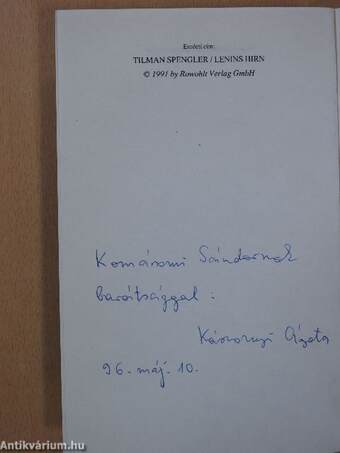 Eredeti cím:
TILMAN SPENGLER / LENINS HIRN
© 1991 by Rowohlt Verlag GmbH
Komáromi Sándornak
barátsággal:
Kászonyi Ágota
96. máj. 10.
Antikvárium.hu
antikvarium.hu